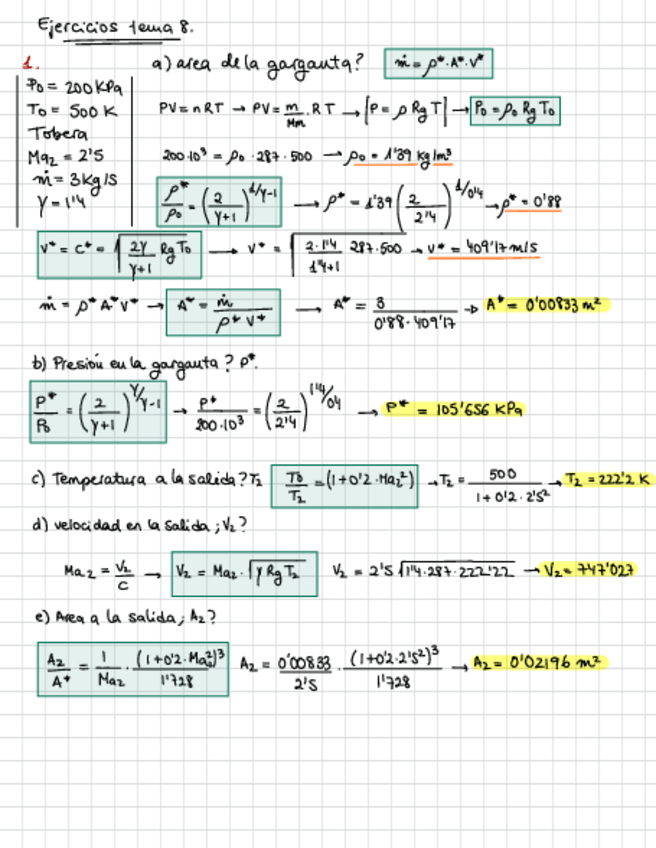 Ejercicios tema 8.
1. a) area de la garganta? ṁ = ρ*·A*·v*
P0 = 200 KPa
T0 = 500 K
Tobera
Ma2 = 2'5
ṁ = 3 Kg/s
γ = 1'4
PV = nRT → PV = m/Mm · RT → |P = ρ Rg T| → P0 = ρ0 Rg T0
200·10³ = ρ0 · 287 · 500 → ρ0 = 1'39 kg/m³
ρ*/ρ0 = (2/(γ+1))^(1/γ-1) → ρ* = 1'39 (2/2'4)^(1/0'4) → ρ* = 0'88
v* = c* = √(2γ/(γ+1) Rg T0) → v* = √(2·1'4/(1'4+1) 287·500) → v* = 409'17 m/s
ṁ = ρ* A* v* → A* = ṁ/(ρ* v*) → A* = 3/(0'88·409'17) → A* = 0'00833 m²
b) Presión en la garganta? P*.
P*/P0 = (2/(γ+1))^(γ/γ-1) → P*/(200·10³) = (2/2'4)^(1'4/0'4) → P* = 105'656 KPa
c) Temperatura a la salida? T2 T0/T2 = (1+0'2·Ma2²) → T2 = 500/(1+0'2·2'5²) → T2 = 222'2 K
d) velocidad en la salida; V2?
Ma2 = V2/C → V2 = Ma2·√(γ Rg T2) V2 = 2'5 √(1'4·287·222'22) → V2 = 747'027
e) Area a la salida; A2?
A2/A* = 1/Ma2 · (1+0'2·Ma2²)³/1'728 A2 = 0'00833/2'5 · (1+0'2·2'5²)³/1'728 → A2 = 0'02196 m²